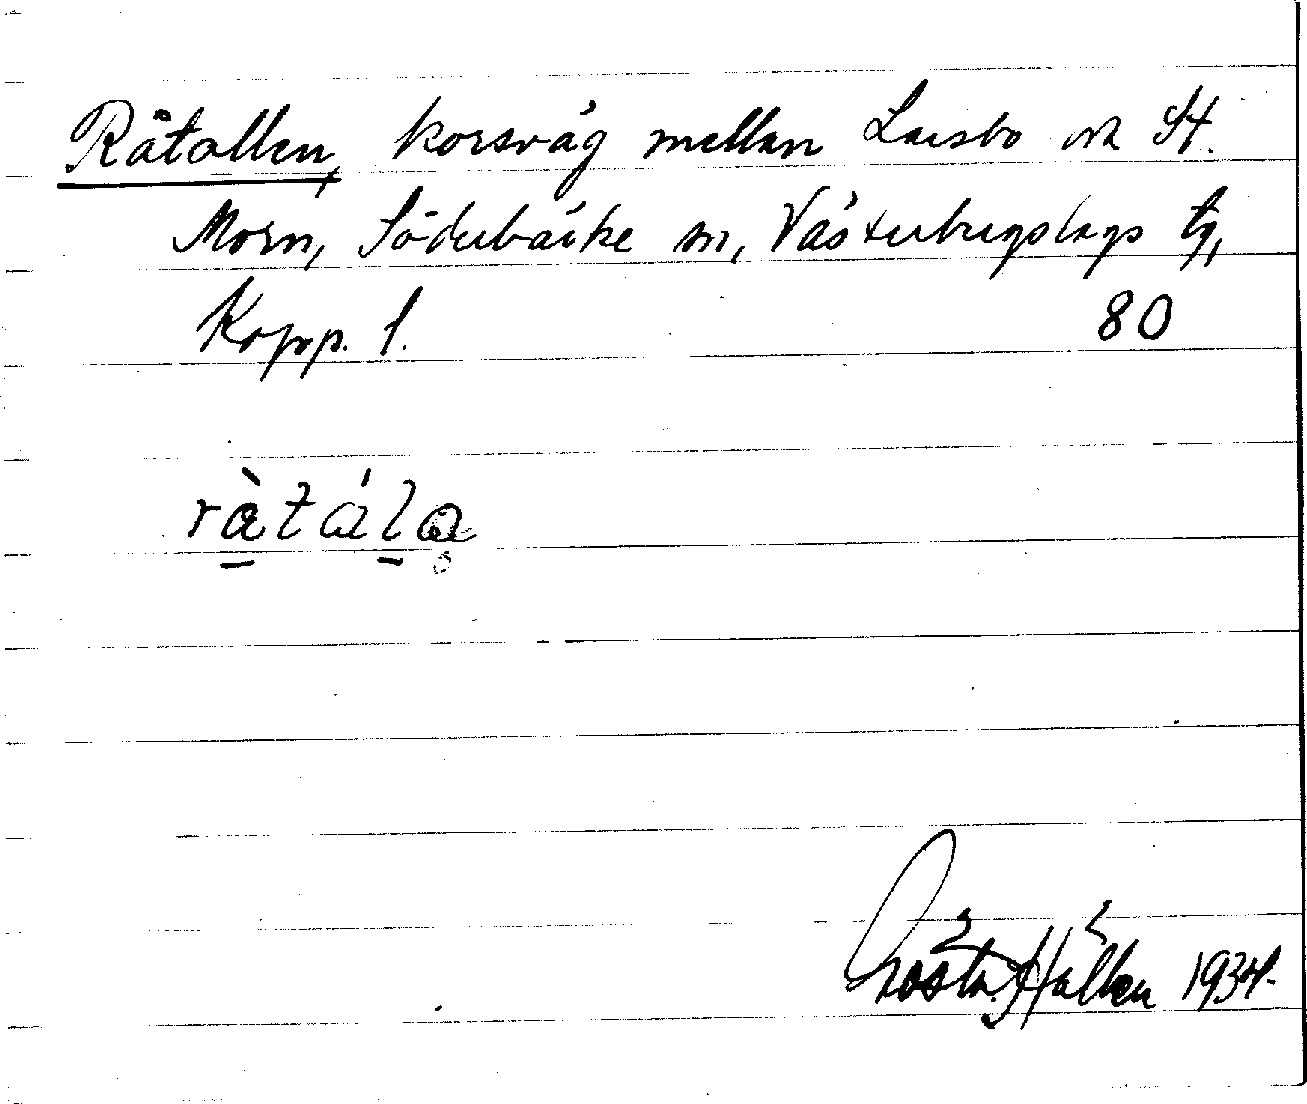 Råtallen, korsväg mellan Larsbo och St.
Morn, Söderbärke sn, Västerbergslags tg,
Kopp. l. 80
ràtálα
Gösta Hallén 1934.